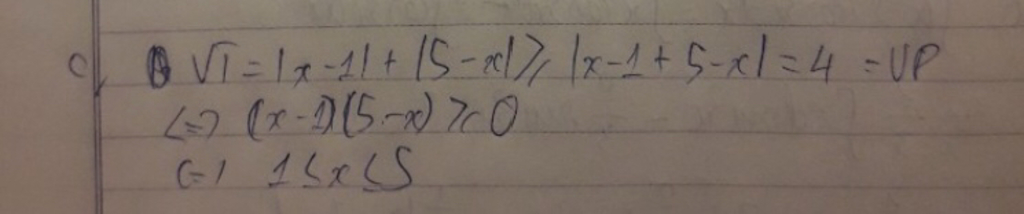 c, VT = |x - 1| + |5 - x| ≥ |x - 1 + 5 - x| = 4 = VP
<=> (x - 1)(5 - x) ≥ 0
<=> 1 ≤ x ≤ 5